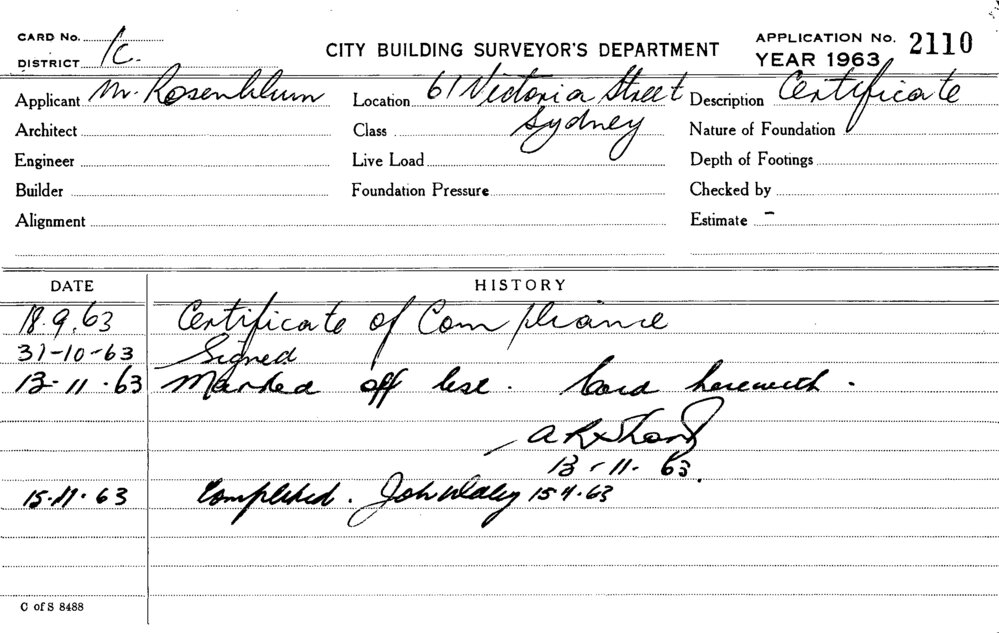 CARD No.
DISTRICT 1c.
CITY BUILDING SURVEYOR'S DEPARTMENT
APPLICATION No. 2110
YEAR 1963
Applicant M. Rosenblum Location 61 Victoria Street Description Certificate
Architect Class Sydney Nature of Foundation
Engineer Live Load Depth of Footings
Builder Foundation Pressure Checked by
Alignment Estimate -
DATE HISTORY
18.9.63 Certificate of Compliance
31-10-63 Signed
13-11.63 Marked off list. Card herewith.
13-11.63.
15.11.63 Completed. John Daley 15.11.63
C of S 8488